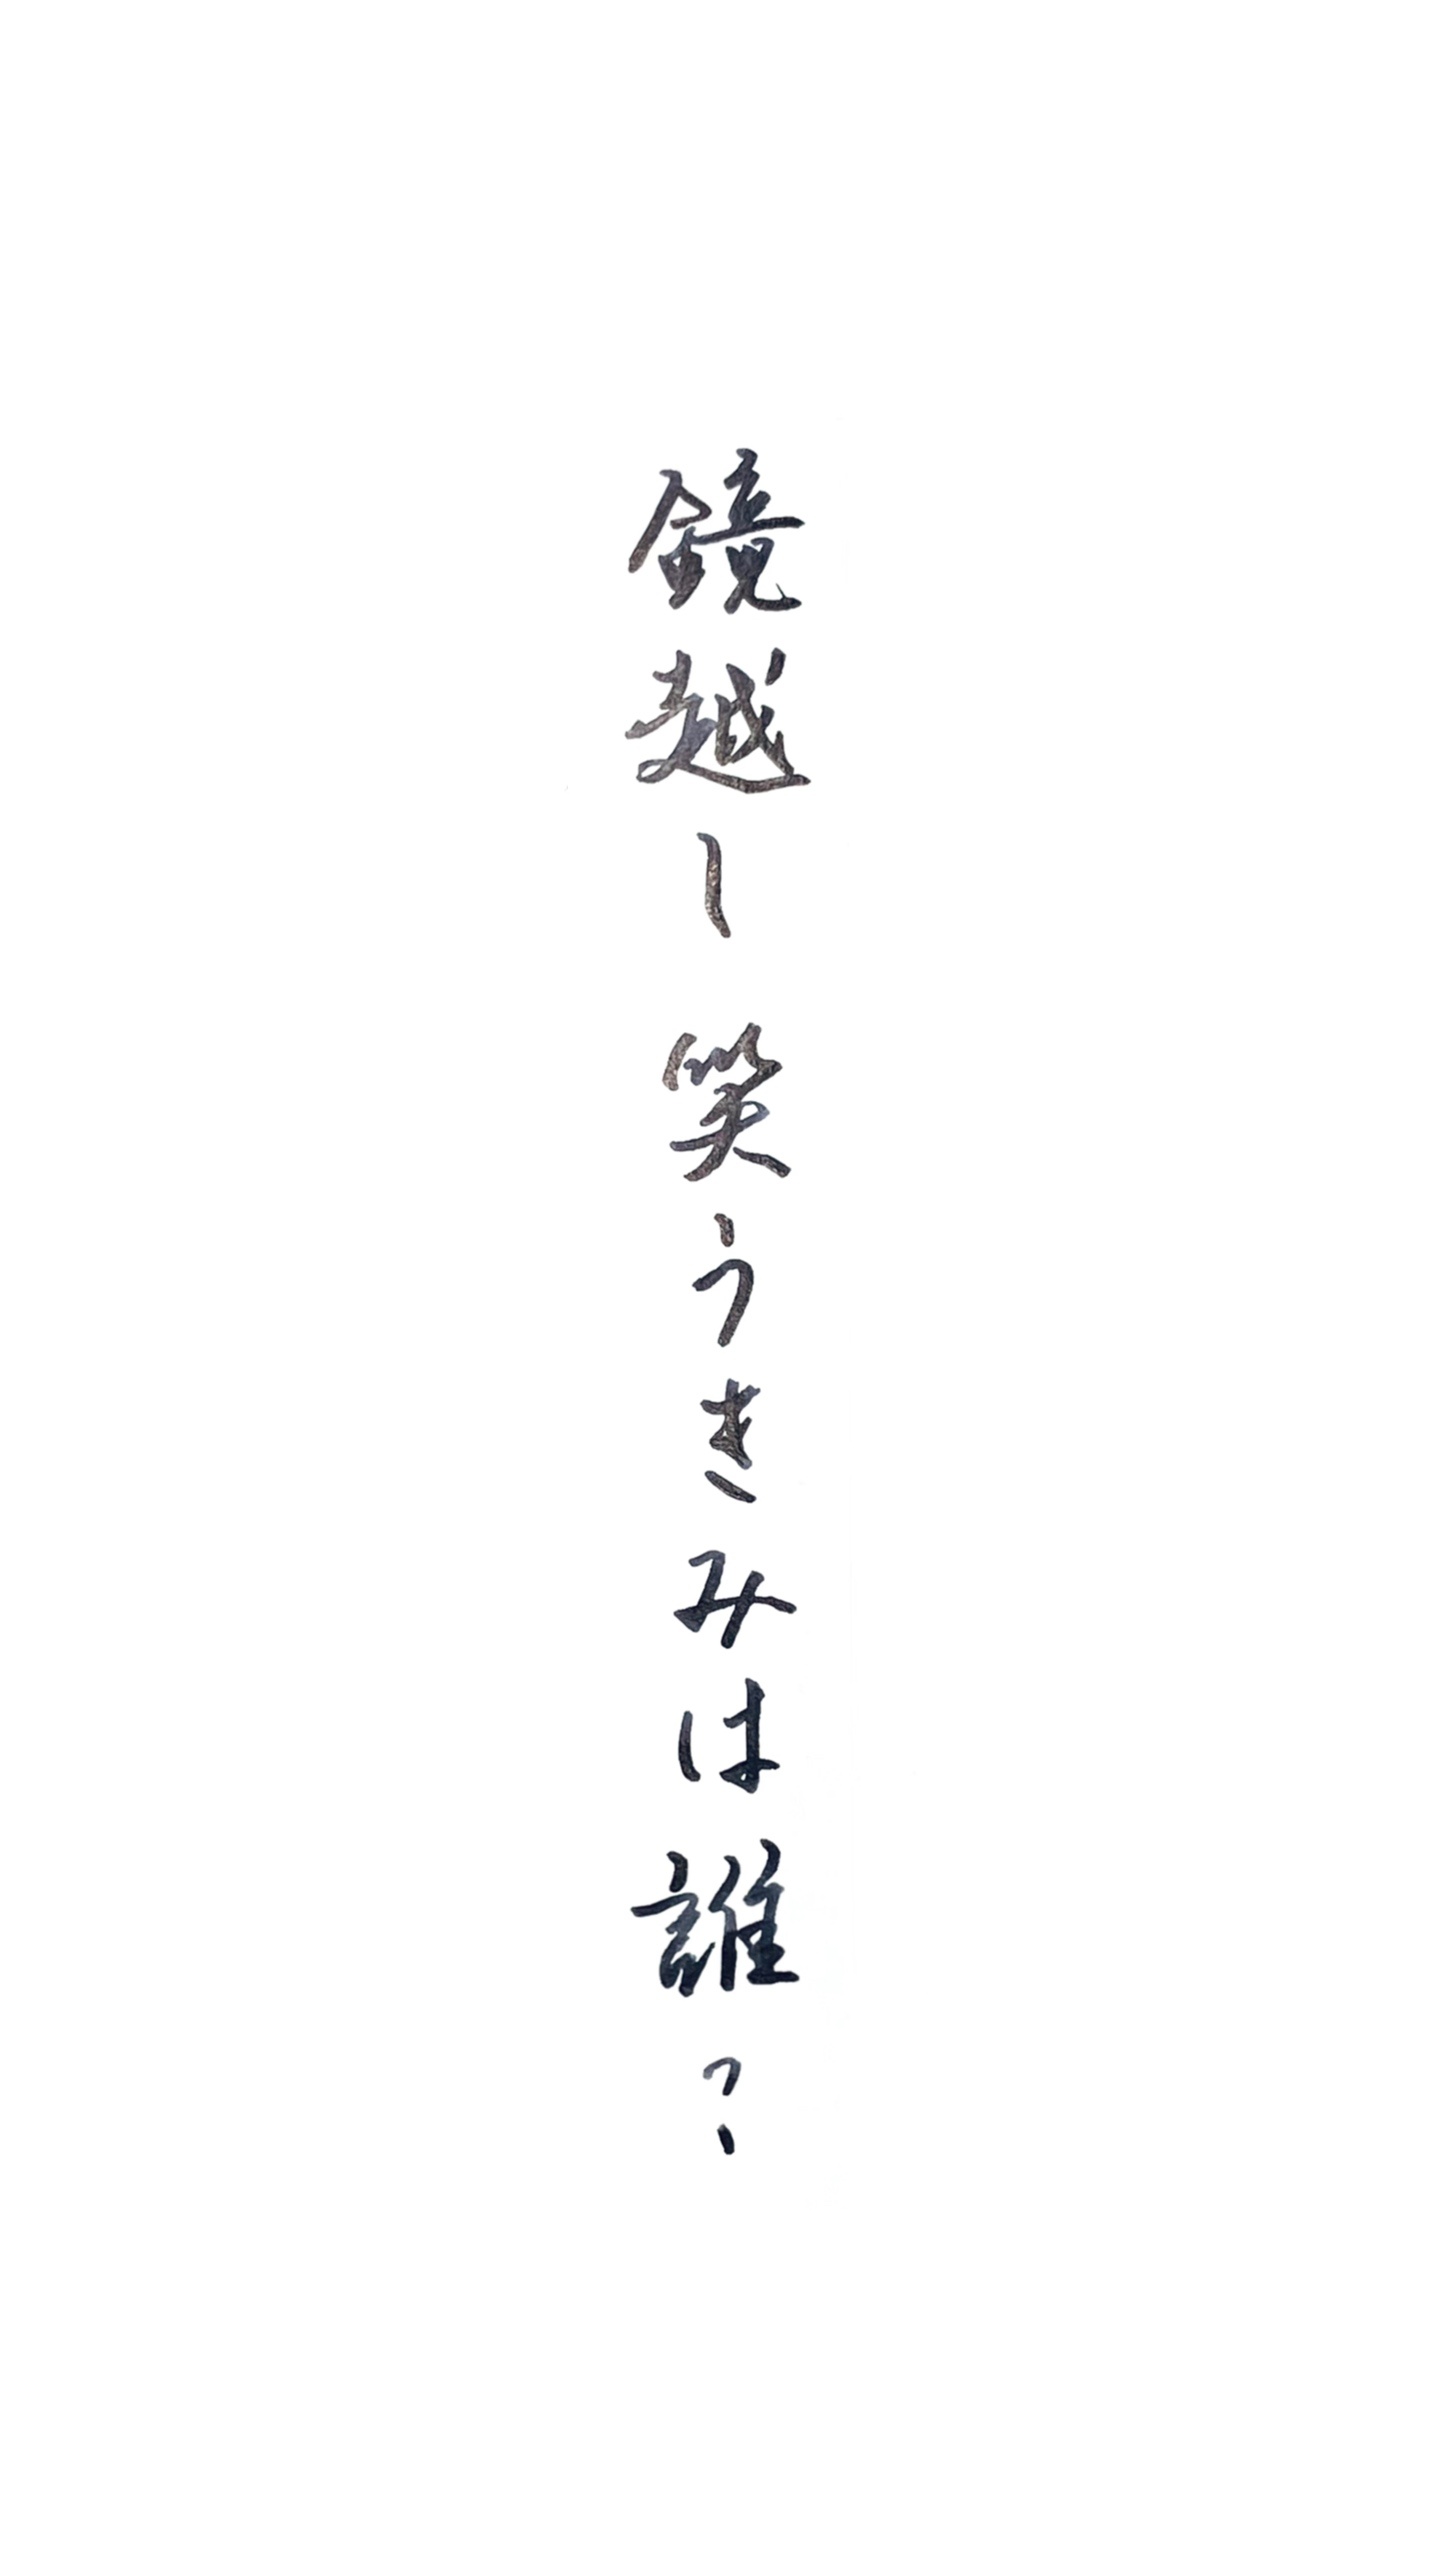 鏡越し 笑うきみは誰?